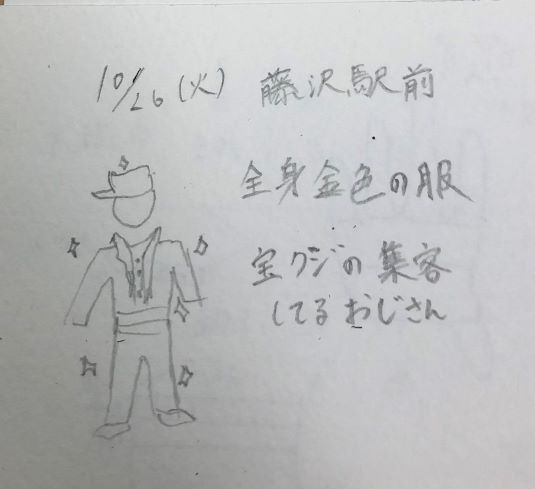 10/26(火) 藤沢駅前
全身金色の服
宝クジの集客
してるおじさん